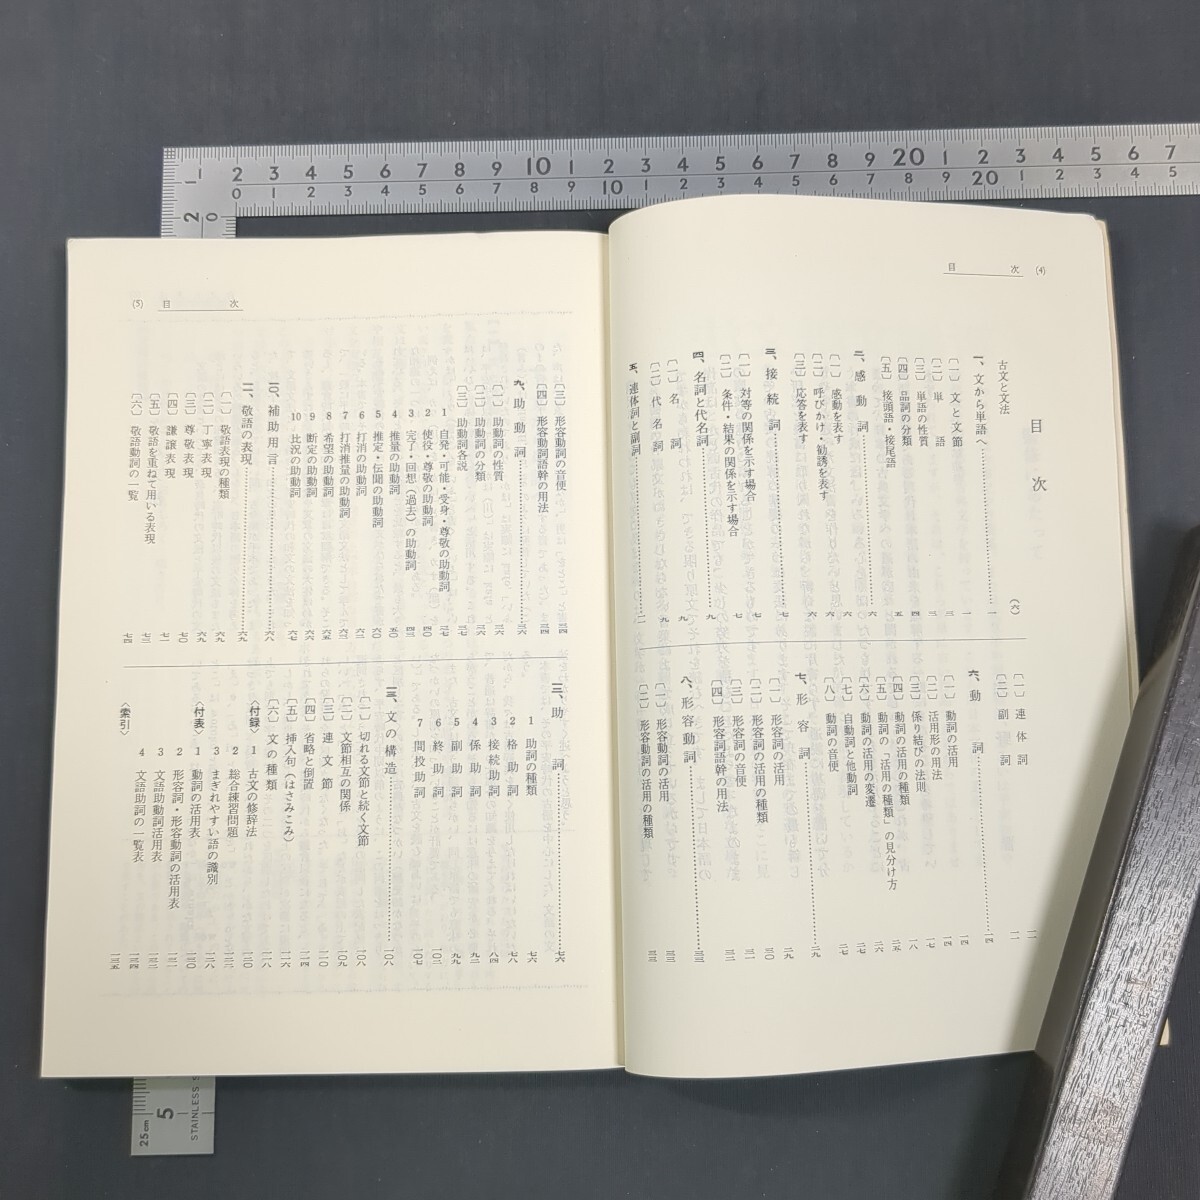 目 次 (4)
目 次
古文と文法 (六)
一、文から単語へ 一
〔一〕 文と文節 一
〔二〕 単語 三
〔三〕 単語の性質 三
〔四〕 品詞の分類 四
〔五〕 接頭語・接尾語 五
二、感動詞 六
〔一〕 感動を表す 六
〔二〕 呼びかけ・勧誘を表す 六
〔三〕 応答を表す 六
三、接続詞 七
〔一〕 対等の関係を示す場合 七
〔二〕 条件・結果の関係を示す場合 七
四、名詞と代名詞 九
〔一〕 名詞 九
〔二〕 代名詞 九
五、連体詞と副詞 一一
〔一〕 連体詞 一一
〔二〕 副詞 一一
六、動詞 一四
〔一〕 動詞の活用 一四
〔二〕 活用形の用法 一七
〔三〕 係り結びの法則 一八
〔四〕 動詞の活用の種類
〔五〕 動詞の「活用の種類」の見分け方 二六
〔六〕 動詞の活用の変遷
〔七〕 自動詞と他動詞 二七
〔八〕 動詞の音便 二七
七、形容詞 二九
〔一〕 形容詞の活用 二九
〔二〕 形容詞の活用の種類 三〇
〔三〕 形容詞の音便 三一
〔四〕 形容詞語幹の用法 三二
八、形容動詞 三三
〔一〕 形容動詞の活用 三三
〔二〕 形容動詞の活用の種類 三三
(5) 目 次
〔三〕 形容動詞の音便 三四
〔四〕 形容動詞語幹の用法 三四
九、助動詞 三六
〔一〕 助動詞の性質 三六
〔二〕 助動詞の分類 三六
〔三〕 助動詞各説 三七
1 自発・可能・受身・尊敬の助動詞 三七
2 使役・尊敬の助動詞 四〇
3 完了・回想(過去)の助動詞 四三
4 推量の助動詞 五〇
5 推定・伝聞の助動詞 六〇
6 打消の助動詞 六二
7 打消推量の助動詞 六三
8 希望の助動詞 六五
9 断定の助動詞 六六
10 比況の助動詞 六七
一〇、補助用言 六八
一一、敬語の表現 六九
〔一〕 敬語表現の種類 六九
〔二〕 丁寧表現 六九
〔三〕 尊敬表現 七〇
〔四〕 謙譲表現 七一
〔五〕 敬語を重ねて用いる表現 七三
〔六〕 敬語動詞の一覧 七四
一二、助詞 七六
1 助詞の種類 七六
2 格助詞 七八
3 接続助詞 八四
4 係助詞 九二
5 副助詞 九九
6 終助詞 一〇三
7 間投助詞 一〇七
一三、文の構造 一〇八
〔一〕 切れる文節と続く文節 一〇八
〔二〕 文節相互の関係 一〇九
〔三〕 連文節 一一〇
〔四〕 省略と倒置 一一四
〔五〕 挿入句(はさみこみ) 一一六
〔六〕 文の種類 一一八
〈付録〉
1 古文の修辞法 一二〇
2 総合練習問題 一二二
3 まぎれやすい語の識別 一二八
〈付表〉
1 動詞の活用表 一三〇
2 形容詞・形容動詞の活用表 一三一
3 文語助動詞活用表 一三二
4 文語助詞の一覧表 一三四
〈索引〉 一三五
25cm
STAINLESS